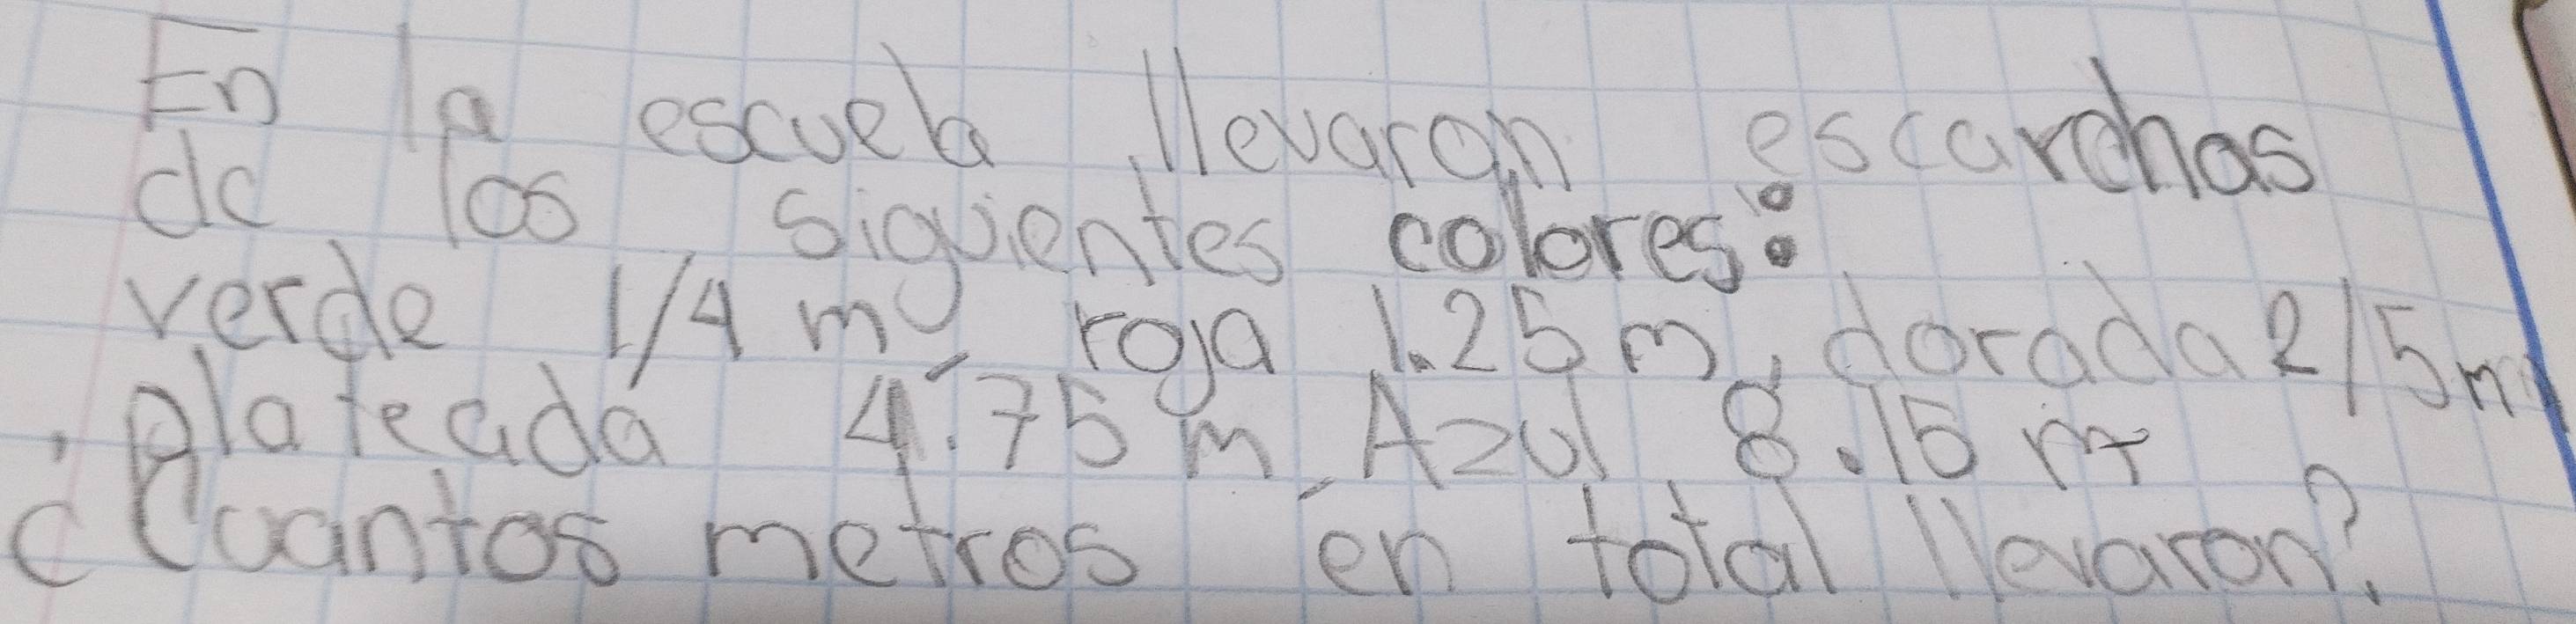 En la escuela llevaron escarchas
de los siguientes colores:
verde 1/4 m, roja 1.25 m, dorada 2/5 m,
plateada 4.75 m, Azul 8.15 m
¿Cuantos metros en total llevaron?